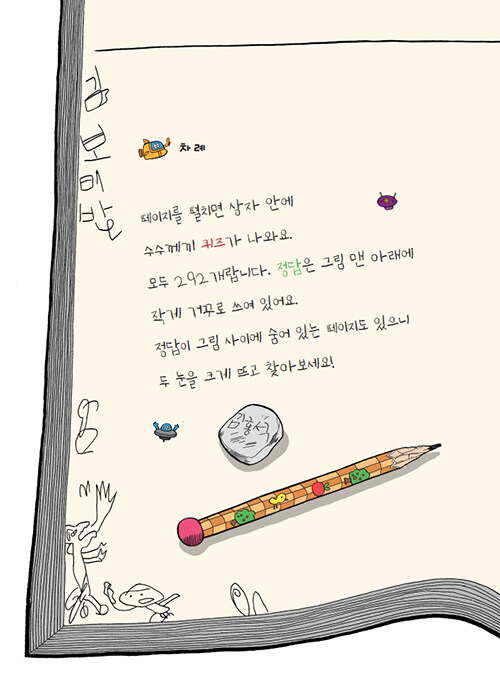 차례
페이지를 펼치면 상자 안에
수수께끼 퀴즈가 나와요.
모두 292개랍니다. 정답은 그림 맨 아래에
작게 거꾸로 쓰여 있어요.
정답이 그림 사이에 숨어 있는 페이지도 있으니
두 눈을 크게 뜨고 찾아보세요!